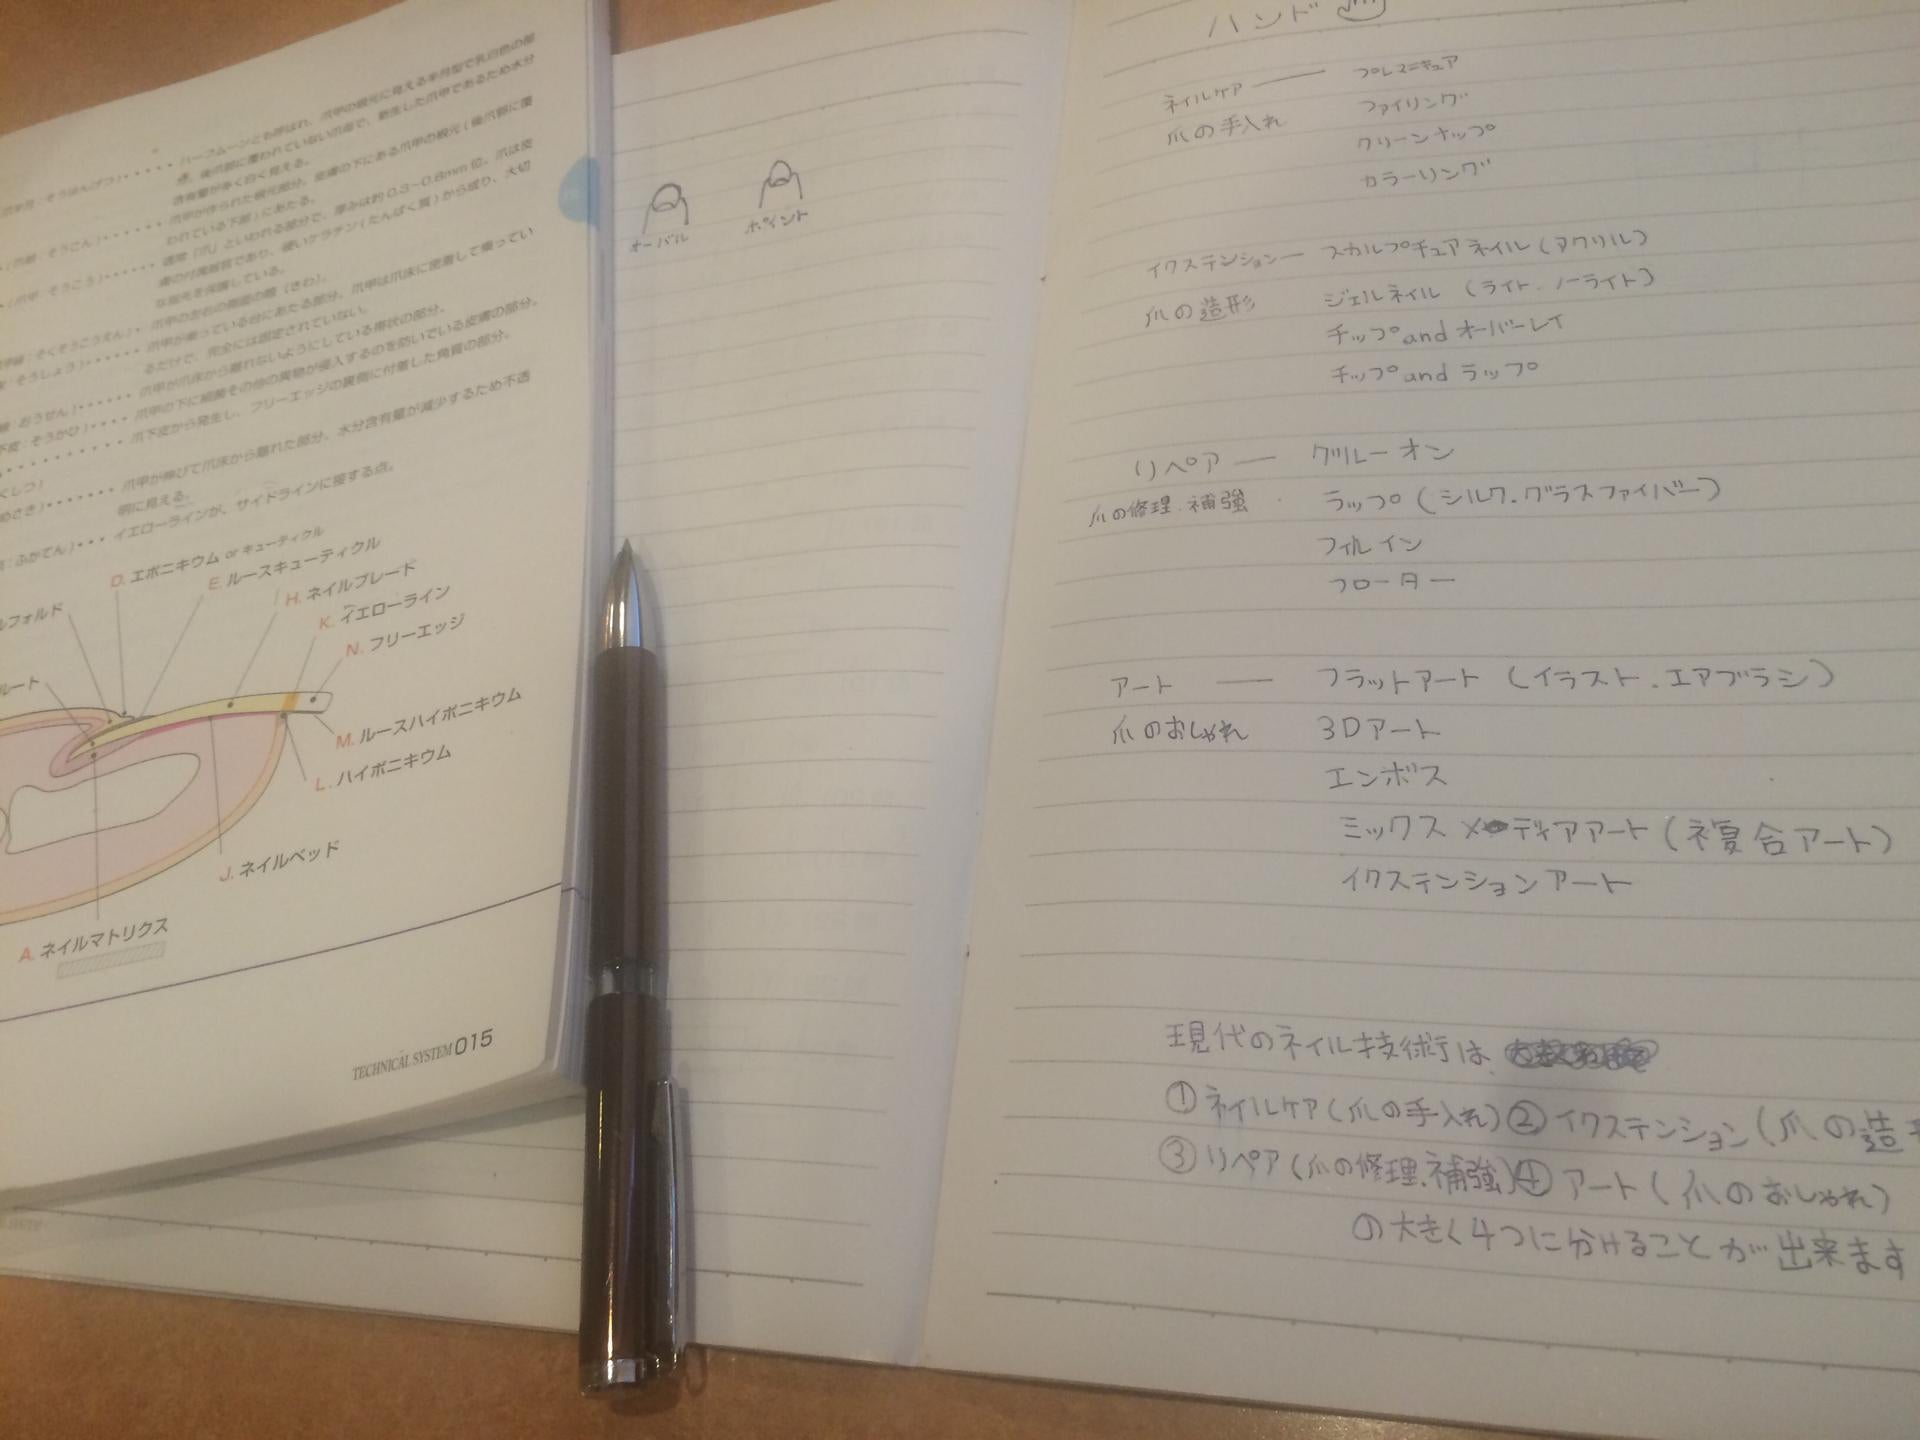 ハーフムーンとも呼ばれ、爪甲の根元に見える半月型で乳白色の部
点。後爪郭に覆われていない爪母で、新生した爪甲であるため水分
含有量が多く白く見える。
爪甲が作られた根元部分。皮膚の下にある爪甲の根元(後爪郭に覆
われている下部)にあたる。
(爪甲:そうこう)・・・・・・通常「爪」といわれる部分で、厚みは約0.3~0.8mm位。爪は皮
膚の付属器官であり、硬いケラチン(たんぱく質)から成り、大切
な指先を保護している。
そくそうこうえん)・爪甲の左右の側面の際(きわ)。
そうしょう)・・・・・・爪甲が乗っている台にあたる部分。爪甲は爪床に密着して乗ってい
るだけで、完全には固定されていない。
おうせん)・・・・・・爪甲が爪床から離れないようにしている帯状の部分。
下皮:そうかひ)・・・・爪甲の下に細菌その他の異物が侵入するのを防いでいる皮膚の部分。
爪下皮から発生し、フリーエッジの裏側に付着した角質の部分。
くしつ)
めさき)・・・・・・・爪甲が伸びて爪床から離れた部分。水分含有量が減少するため不透
明に見える。
ふかてん)・・・イエローラインが、サイドラインに接する点。
D. エポニキウム or キューティクル
E. ルースキューティクル
H. ネイルプレート
K. イエローライン
N. フリーエッジ
ルフォルド
ルート
M. ルースハイポニキウム
L. ハイポニキウム
J. ネイルベッド
A. ネイルマトリクス
TECHNICAL SYSTEM 015
オーバル
ポイント
ハンド
ネイルケア ── プレマニキュア
爪の手入れ ファイリング
クリーンナップ
カラーリング
イクステンション── スカルプチュアネイル(アクリル)
爪の造形 ジェルネイル (ライト.ノーライト)
チップandオーバーレイ
チップand ラップ
リペア ── グルーオン
爪の修理.補強 ラップ(シルク.グラスファイバー)
フィルイン
フローター
アート ── フラットアート (イラスト.エアブラシ)
爪のおしゃれ 3Dアート
エンボス
ミックスメディアアート(複合アート)
イクステンションアート
現代のネイル技術は
①ネイルケア(爪の手入れ)②イクステンション(爪の造
③リペア(爪の修理.補強)④アート(爪のおしゃれ)
の大きく4つに分けることが出来ます